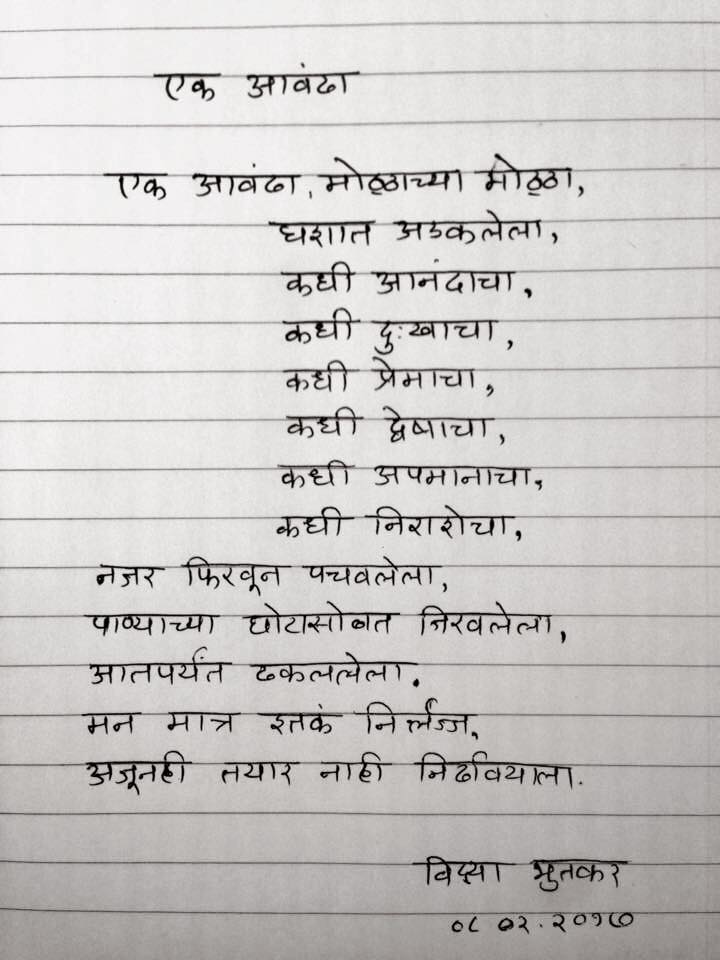 एक आवंढा
एक आवंढा, मोठ्ठाच्या मोठ्ठा,
घशात अडकलेला,
कधी आनंदाचा,
कधी दुःखाचा,
कधी प्रेमाचा,
कधी द्वेषाचा,
कधी अपमानाचा,
कधी निराशेचा,
नजर फिरवून पचवलेला,
पाण्याच्या घोटासोबत जिरवलेला,
आतपर्यंत ढकललेला.
मन मात्र इतकं निर्लज्ज,
अजूनही तयार नाही निर्ढावयाला.
विद्या भुतकर
०८ ०२.२०१७